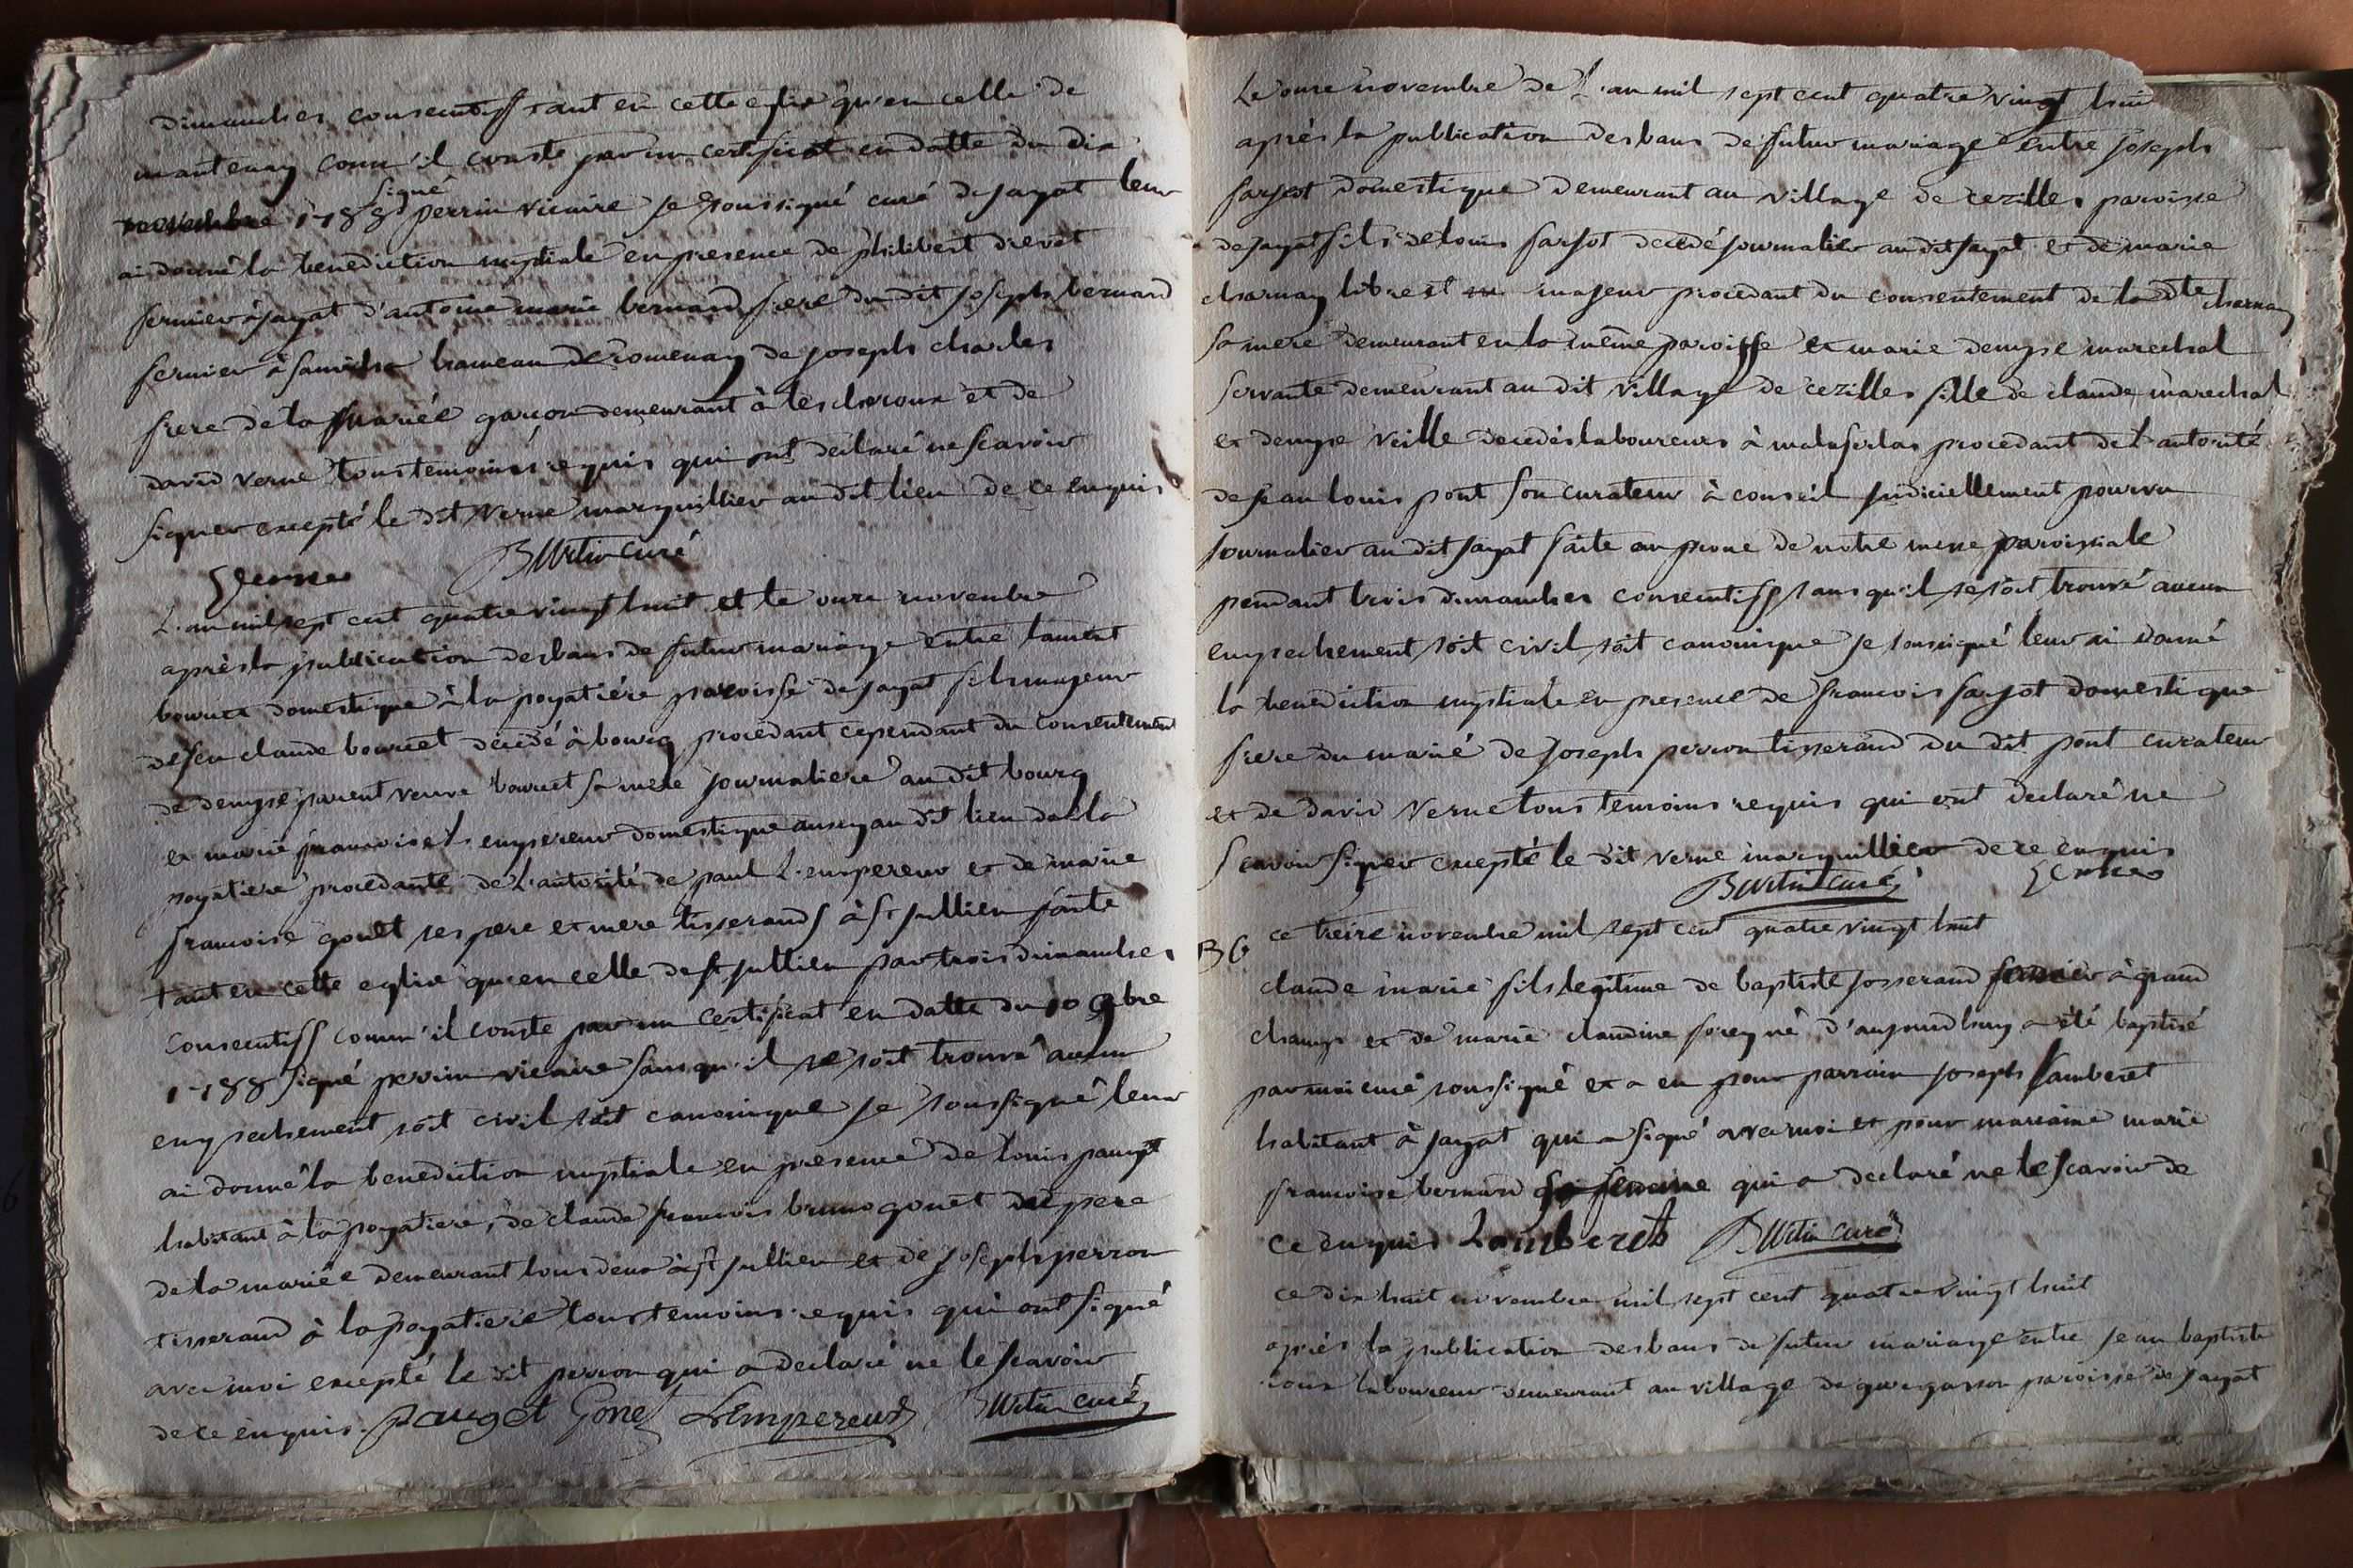 dimanches consecutiff tant en cette eglise qu'en celle de
mantenay comm'il conste par un certificat en datte du dix
novembre 1788 signé perrin vicaire je soussigné curé de jayat leur
ai donné la benediction nuptiale en presence de philibert drevet
fermier à jayat d'antoine marie bernard frere du dit joseph bernard
fermier à hameau de romenay de joseph charles
frere de la mariée garcon demeurant à lescheroux et de
david verne tous temoins requis qui ont declaré ne scavoir
signer excepté le dit verne marguillier au dit lieu de ce enquis
Verne curé
L'an mil sept cent quatre vingt huit et le onze novembre
après la publication des bans de futur mariage entre laurent
bouvret domestique à la poyatiére paroisse de jayat fils majeur
de feu claude bouvret décédé à bourg procedant cependant du consentement
de denyse parent veuve bouvret sa mere journaliere au dit bourg
et marie francoise L'empereur domestique aussy au dit lieu de la
poyatiere procedante de L'autorité de paul L'empereur et de marie
francoise gonet ses pere et mere tisserands à st jullien faite
tant en cette eglise qu'en celle de st jullien par trois dimanches
consecutiff comm'il conste par un certificat en datte du 10 9bre
1788 signé perrin vicaire sans qu'il se soit trouvé aucun
empechement soit civil soit canonique je soussigné leur
ai donné la benediction nuptiale en presence de louis pauget
habitant à la poyatiere, de claude francois bruno gonet du pere
de la mariée demeurant tous deux à st jullien et de joseph perron
tisserand à la poyatiere tous temoins requis qui ont signé
avec moi excepté le dit perron qui a declaré ne le scavoir
de ce enquis. pauget Gonet Lempereur curé
Le onze novembre de L'an mil sept cent quatre vingt huit
après la publication des bans de futur mariage entre joseph
farjot domestique demeurant au village de cezilles paroisse
de jayat fils de louis farjot decedé journalier au dit jayat et de marie
charnay libre et majeur procedant du consentement de la dte charnay
sa mere demeurant en la même paroisse et marie denyse marechal
servante demeurant au dit village de cezilles fille de claude marechal
et denyse veille decedés laboureurs à malaferlas procedant de L'autorité
de jean louis pont son curateur à conseil judiciellement pourvu
journalier au dit jayat faite au prone de notre messe paroissiale
pendant trois dimanches consecutiff sans qu'il se soit trouvé aucun
empechement soit civil soit canonique je soussigné leur ai donné
la benediction nuptiale en presence de francois farjot domestique
frere du marié de joseph perron tisserand du dit pont curateur
et de david verne tous temoins requis qui ont declaré ne
scavoir signer excepté le dit verne marguillier de ce enquis
curé Verne
ce treize novembre mil sept cent quatre vingt huit
claude marie fils legitime de baptiste josserand fermier à grand
champ et de marie claudine forey né d'aujourdhuy a été baptisé
par moi curé soussigné et a eu pour parrain joseph lamberet
habitant à jayat qui a signé avec moi et pour marraine marie
francoise bernard sa femme qui a declaré ne le scavoir de
ce enquis Lamberet curé
ce dix huit novembre mil sept cent quatre vingt huit
après la publication des bans de futur mariage entre jean baptiste
laboureur demeurant au village de paroisse de jayat